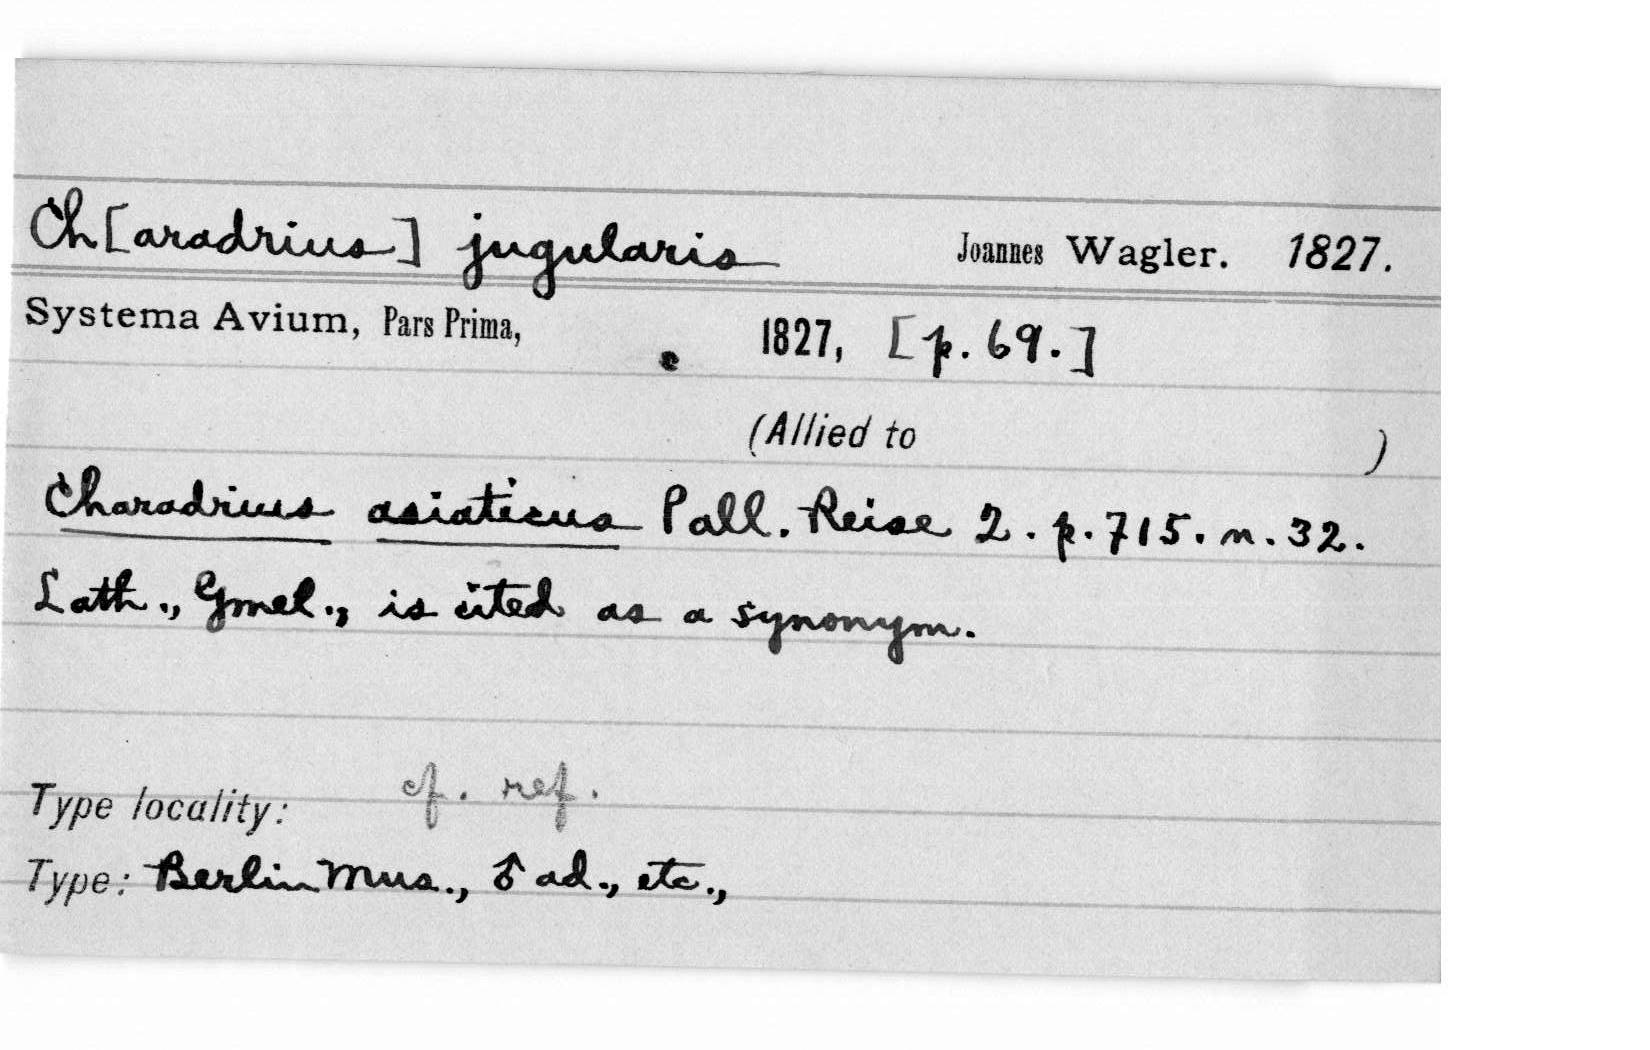 Ch[aradrius] jugularis Joannes Wagler. 1827.
Systema Avium, Pars Prima, 1827, [p. 69.]
(Allied to )
Charadrius asiaticus Pall. Reise 2. p. 715. n. 32.
Lath., Gmel., is cited as a synonym.
Type locality: cf. ref.
Type: Berlin Mus., ♂ ad., etc.,